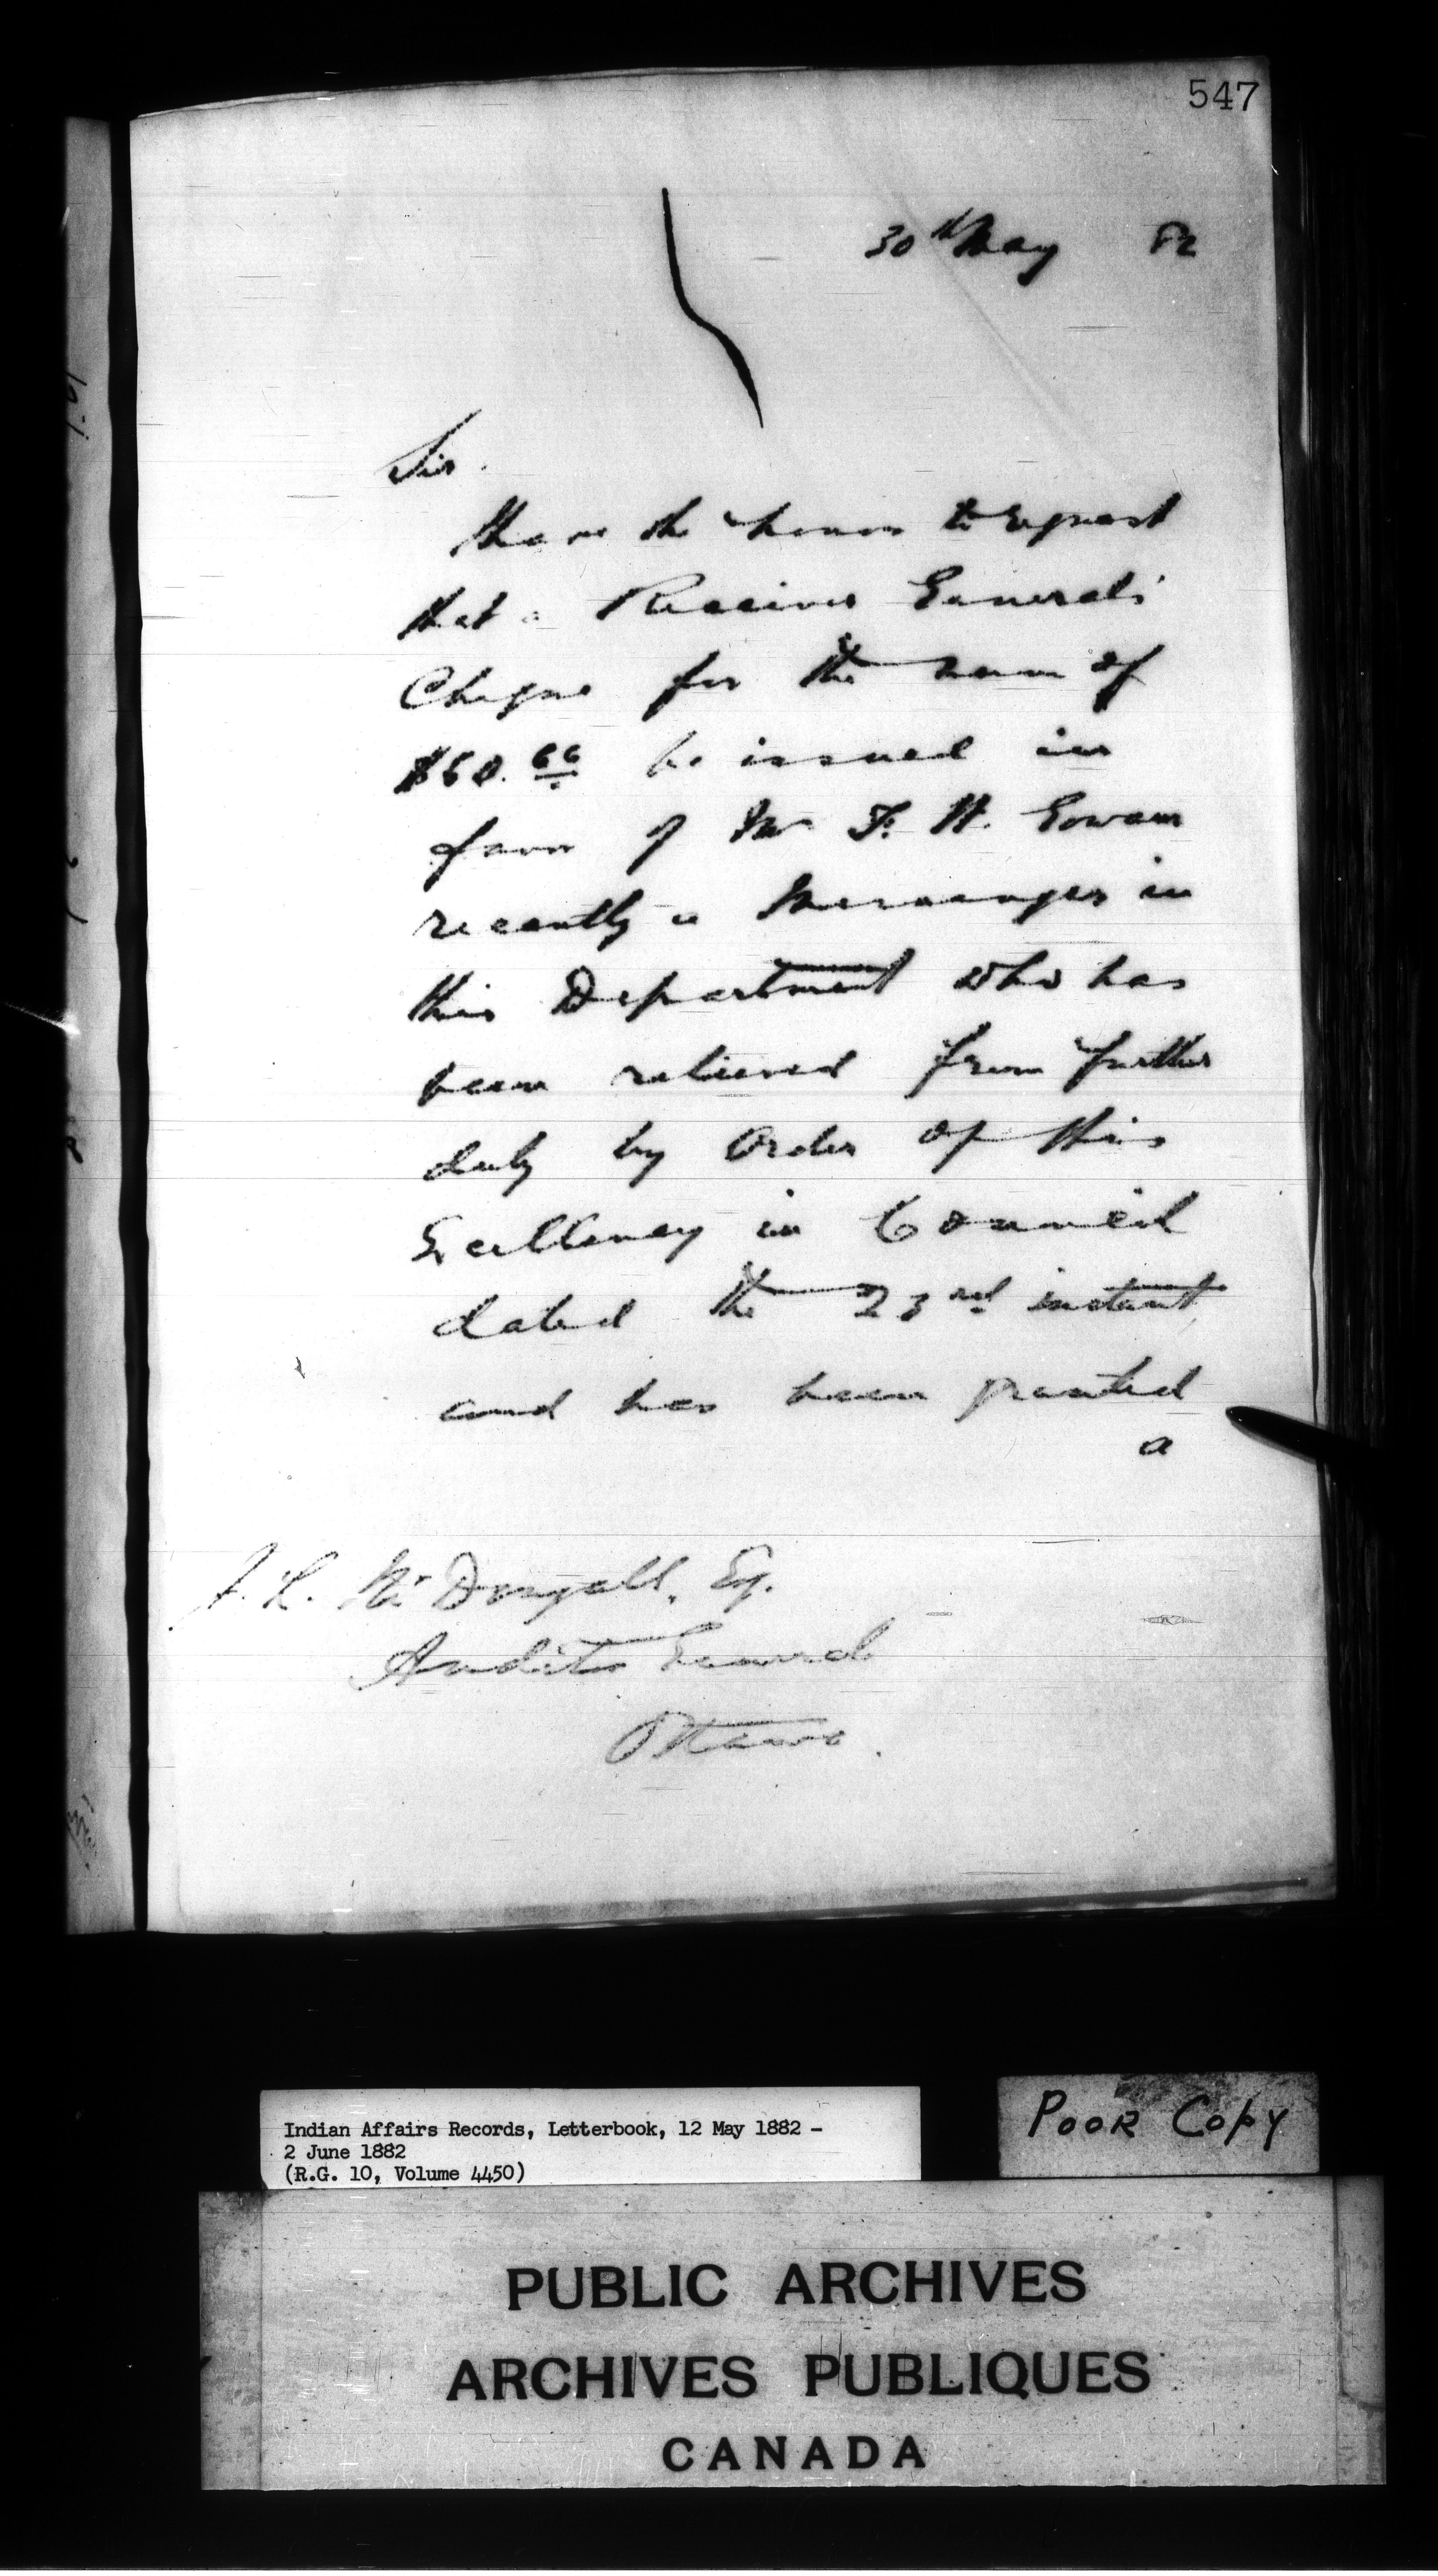 547
30th May 82
Sir.
I have the honor to request
that a Receiver General's
Cheque for the sum of
$60.66 be issued in
favor of Mr F. H. Gowan
recently a Messenger in
this Department who has
been relieved from further
duty by Order of His
Excellency in Council
dated the 23rd instant,
and has been granted
a
J. L. McDougall, Esq.
Auditor General
Ottawa.
Indian Affairs Records, Letterbook, 12 May 1882 –
2 June 1882
(R.G. 10, Volume 4450)
POOR COPY
PUBLIC ARCHIVES
ARCHIVES PUBLIQUES
CANADA